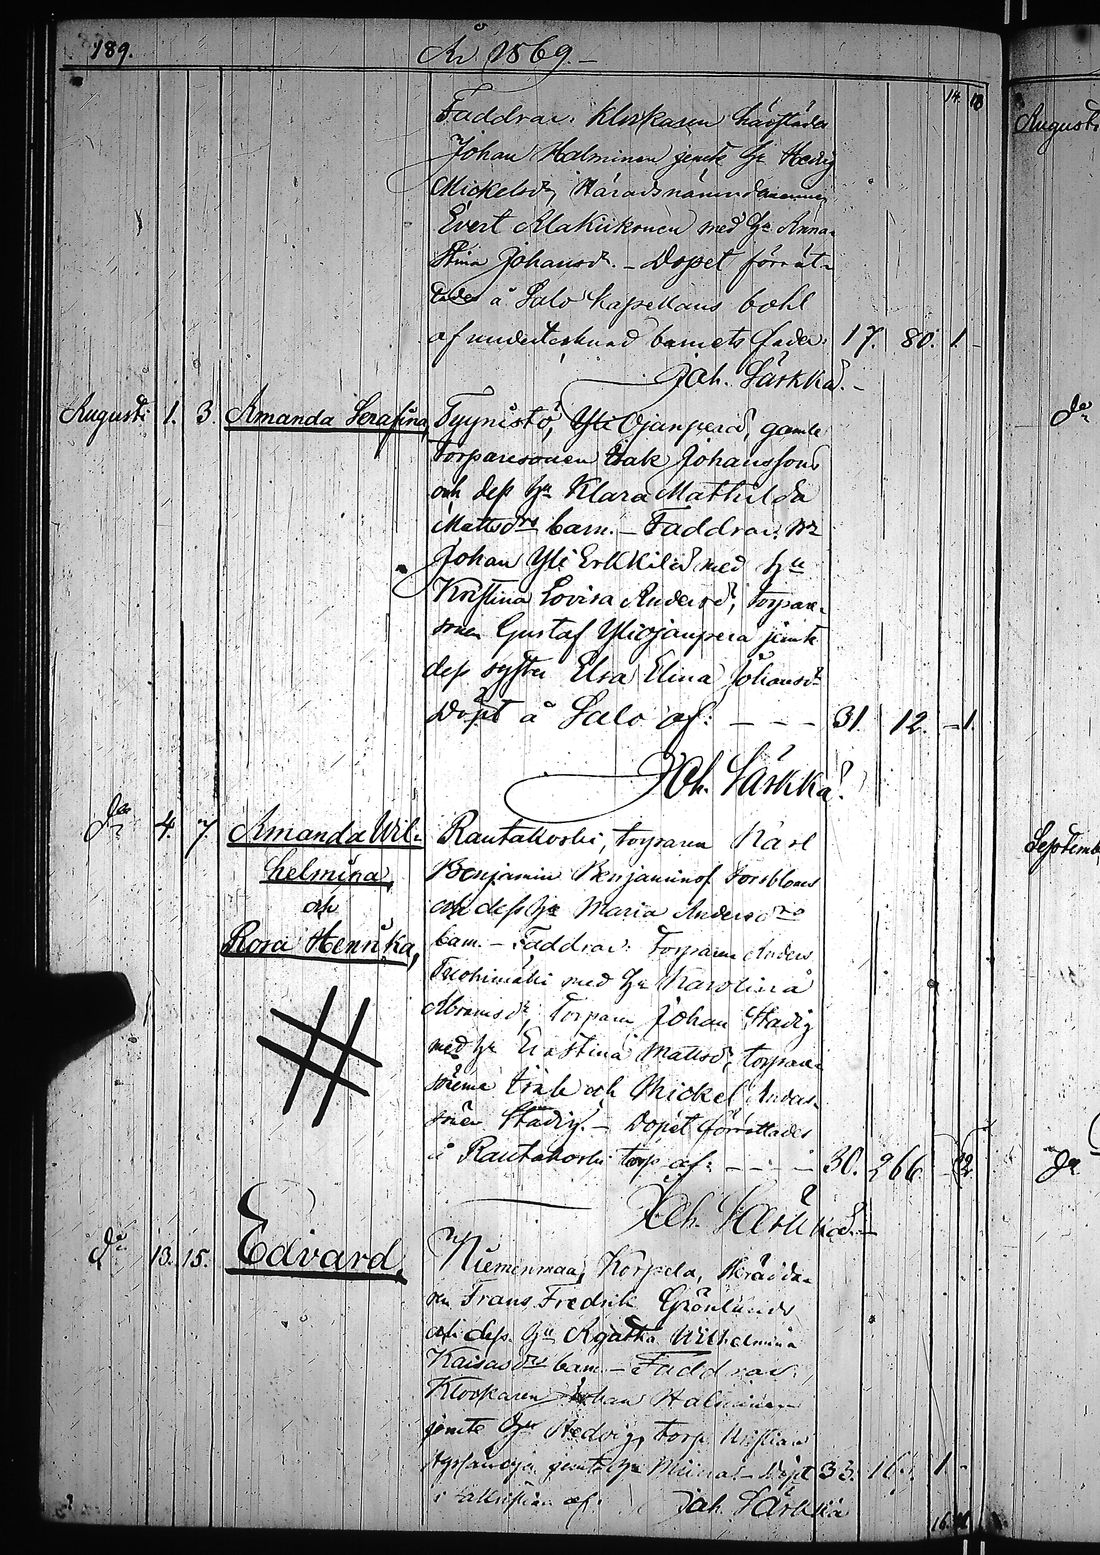 189. År 1869.
14. 13
Faddrar: Klockaren härstädes
Johan Halminen jemte h. Hedvig
Mickelsdr, Häradsnämndemannen
Evert Alakiikonen med h. Anna
Stina Johansdr. – Dopet förrät-
tades å Salo kapellans bohl
af undertecknad barnets fader. 17. 80. 1.
Joh. Särkkä.
Augusti 1. 3. Amanda Serafina, Tyynistö, Yli Ojanperä, gamle
torparesonen Isak Johansson
och dess hu Klara Mathilda
Mattsdrs barn. – Faddrar:
Johan Yli Erkkilä med hu
Kristina Lovisa Andersdr, torpare-
sonen Gustaf Yliojanpera jemte
dess syster Elsa Elina Johansdr
Döpt å Salo af: – – – 31. 12. – 1.
Joh. Särkkä.
do 4. 7. Amanda Wil- Rautakoski, torparen Karl
helmina, Benjamin Benjaminsf Forsbloms
och och dess hu Maria Andersdrs
Rosa Henrika, barn. – Faddrar: Torparen Anders
med hu Karolina
Abramsdr, Torparen Johan Stadig
med hu Eva Stina Mattsdr, torpare-
sönerne Erik och Mickel Anders-
söner Stadig. – Dopet förrättades
å Rautakoski torp af: – – – 30. 266 2
Joh. Särkkä.
do 13. 15. Edvard, Niemenmaa, Korpela, skrädda-
ren Frans Fredrik Grönlunds
och dess hu Agatha Wilhelmina
Kaisasdrs barn – Faddrar:
Klockaren Johan Halminen
jemte hu Hedvig, torp. Kristian
jemte hu Miina – Döpt 33. 1.
i sakristian af: Joh. Särkkä
16.
Augusti
do
Septemb
do